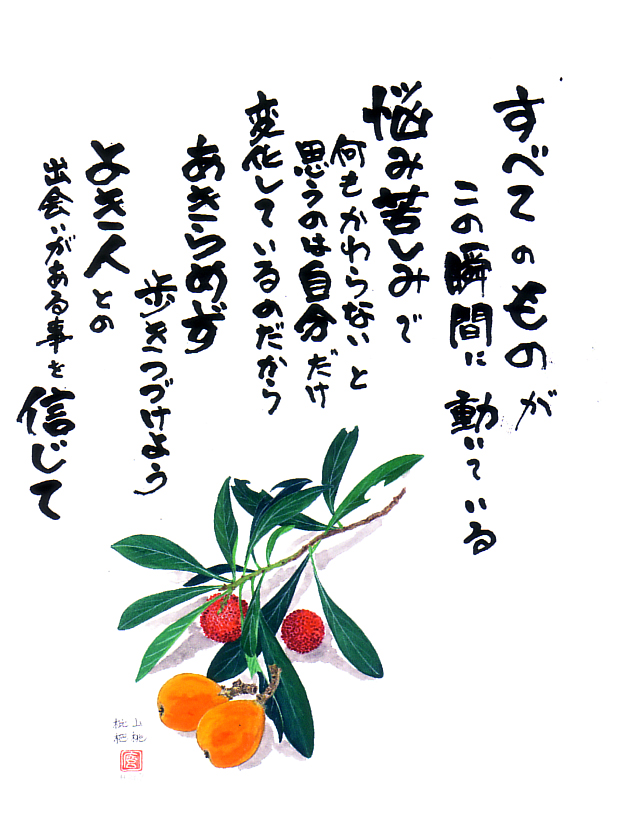 すべてのものが
この瞬間に動いている
悩み苦しみで
何もかわらないと
思うのは自分だけ
変化しているのだから
あきらめず
歩きつづけよう
よき人との
出会いがある事を信じて
山桃
枇杷